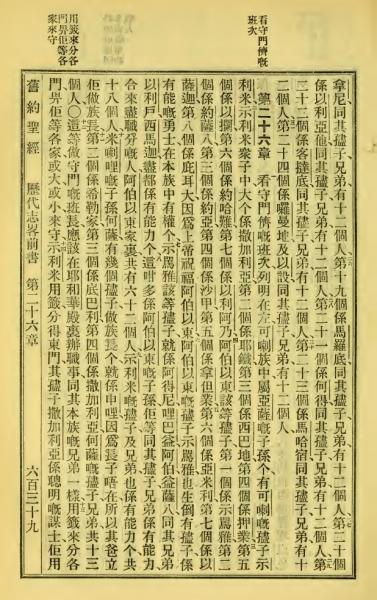 看守門儕嘅
班次
用籤來分各
門畀佢等各
家來守
拿尼同其孻子兄弟有十二個人、第十九個係馬羅底同其孻子兄弟有十二個人、第二十個
係以利亞他同其孻子兄弟有十二個人、第二十一個係何得同其孻子兄弟有十二個人、第
二十二個係客撻底同其孻子兄弟有十二個人、第二十三個係馬哈宿同其孻子兄弟有十
二個人、第二十四個係囉曼地及以設同其孻子兄弟有十二個人、
第二十六章 看守門儕嘅班次列明在左、可喇族中屬亞薩嘅子孫、個有可喇嘅孻子示
利米、示利米衆子中、大個係撒加利亞、第二個係耶鐵、第三個係西巴地、第四個係押業、第五
個係以攔、第六個係約哈難、第七個係以利阿乃、阿伯以東該等孻子、第一個係示罵雅、第二
個係約薩八、第三個係約亞、第四個係沙甲、第五個係拿但業、第六個係亞米利、第七個係以
薩迦、第八個係庇耳大、因爲上帝祝福阿伯以東、阿伯以東嘅孻子示罵雅、也生倒有孻子、係
有能嘅勇士、在本族中有權、個示罵雅該等孻子、就係阿得尼、哩巴益、阿伯、益薩八、同其兄弟
以利戶、西馬迦、盡都係有能力個人、這咁多係阿伯以東嘅子孫、佢等同其孻子兄弟、係有能力
合來盡職分嘅人、阿伯以東家裏共有六十二個人、示利米嘅孻子及兄弟也係有能力個、共
十八個人、米喇哩嘅子孫何薩有幾個孻子、做族長個就係申哩、因爲長子唔在、所以其爸立
佢做族長、第二個係希勒家、第三個係底巴利、第四個係撒加利亞、何薩嘅孻子兄弟共十三
個人、○這等做守門嘅班長、應該在耶和華殿裏辦職事、同其本族嘅兄弟一樣、用籤來分各
門畀佢等各家、或大或小來守、示利米用籤分得東門、其孻子撒加利亞係聰明嘅謀士、佢用
舊約聖經 歷代志畧前書 第二十六章 六百三十九